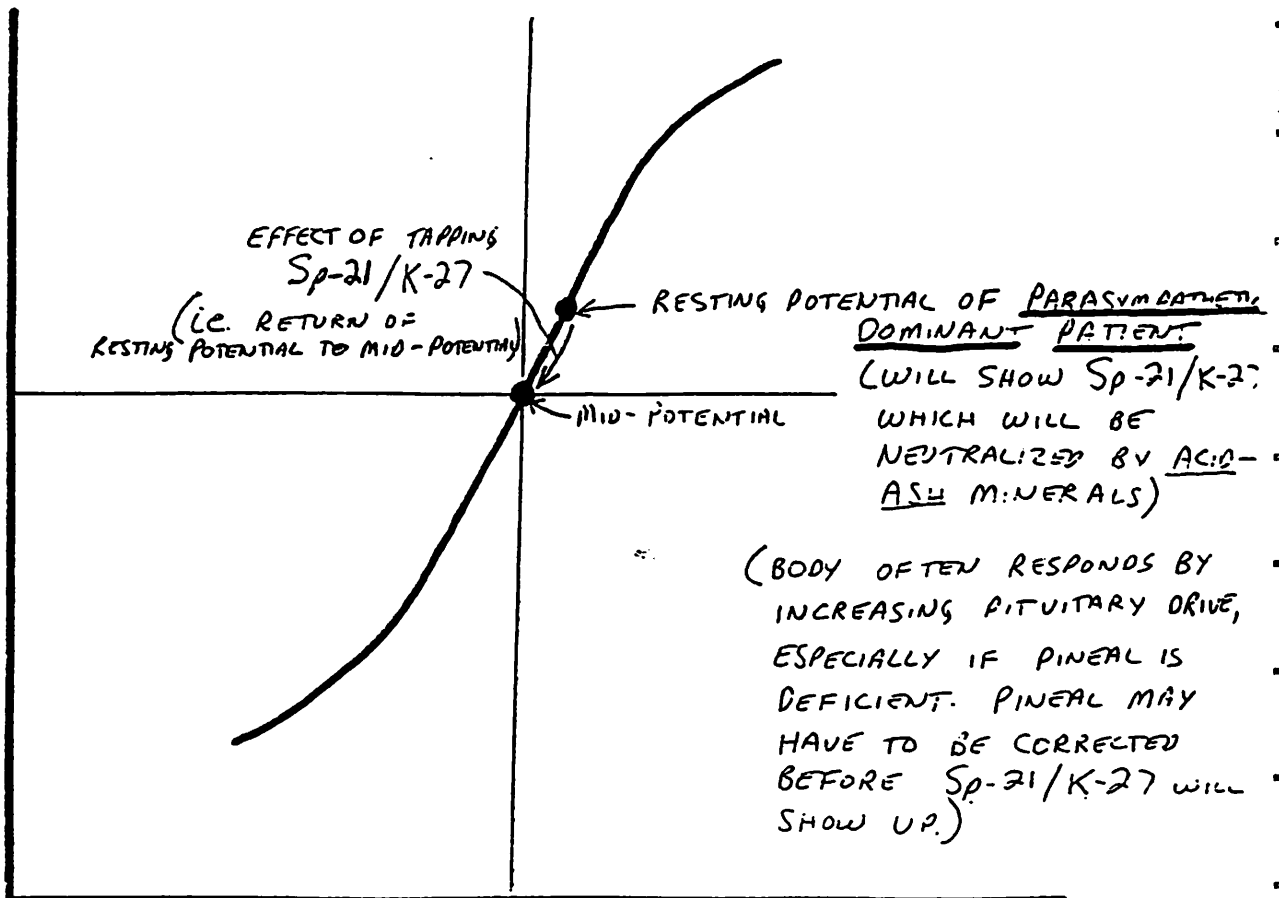 EFFECT OF TAPPING
Sp-21/K-27
(i.e. RETURN OF
RESTING POTENTIAL TO MID-POTENTIAL)
RESTING POTENTIAL OF PARASYMPATHETIC
DOMINANT PATIENT
(WILL SHOW Sp-21/K-27
WHICH WILL BE
NEUTRALIZED BY ACID-
ASH MINERALS)
MID-POTENTIAL
(BODY OFTEN RESPONDS BY
INCREASING PITUITARY DRIVE,
ESPECIALLY IF PINEAL IS
DEFICIENT. PINEAL MAY
HAVE TO BE CORRECTED
BEFORE Sp-21/K-27 WILL
SHOW UP.)